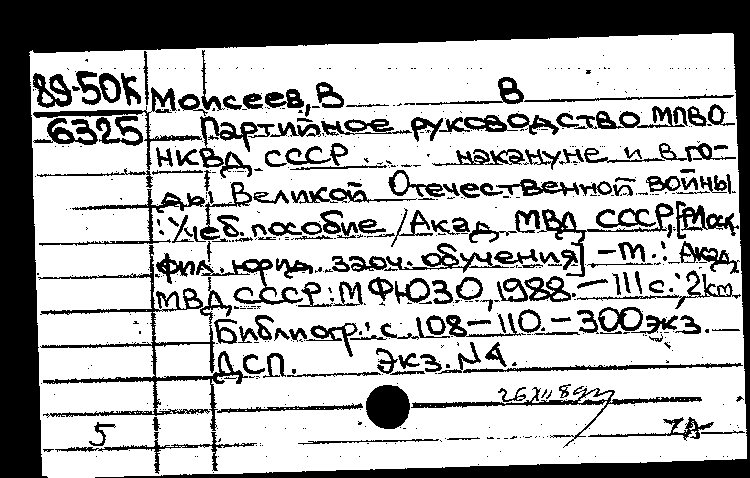 89-50К
6325
Моисеев, В В
Партийное руководство МПВО
НКВД СССР . . накануне и в го-
ды Великой Отечественной войны
: Учеб. пособие / Акад. МВД СССР, [Моск.
фил. юрид. заоч. обучения]. – М.: Акад.
МВД СССР: МФЮЗО, 1988. – 111 с.; 21 см
Библиогр.: с. 108–110. – 300 экз.
ДСП. Экз. N 4.
26.XII 89
5